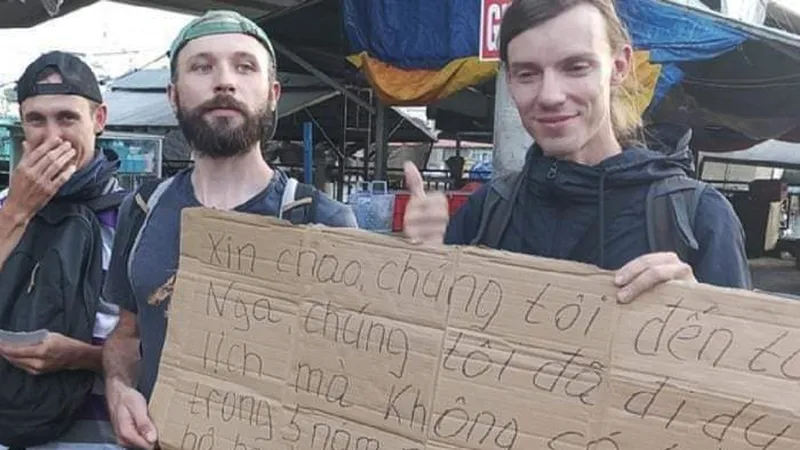 Xin chào, chúng tôi đến
Nga, chúng tôi đã đi du
lịch mà không có
trong 5 năm